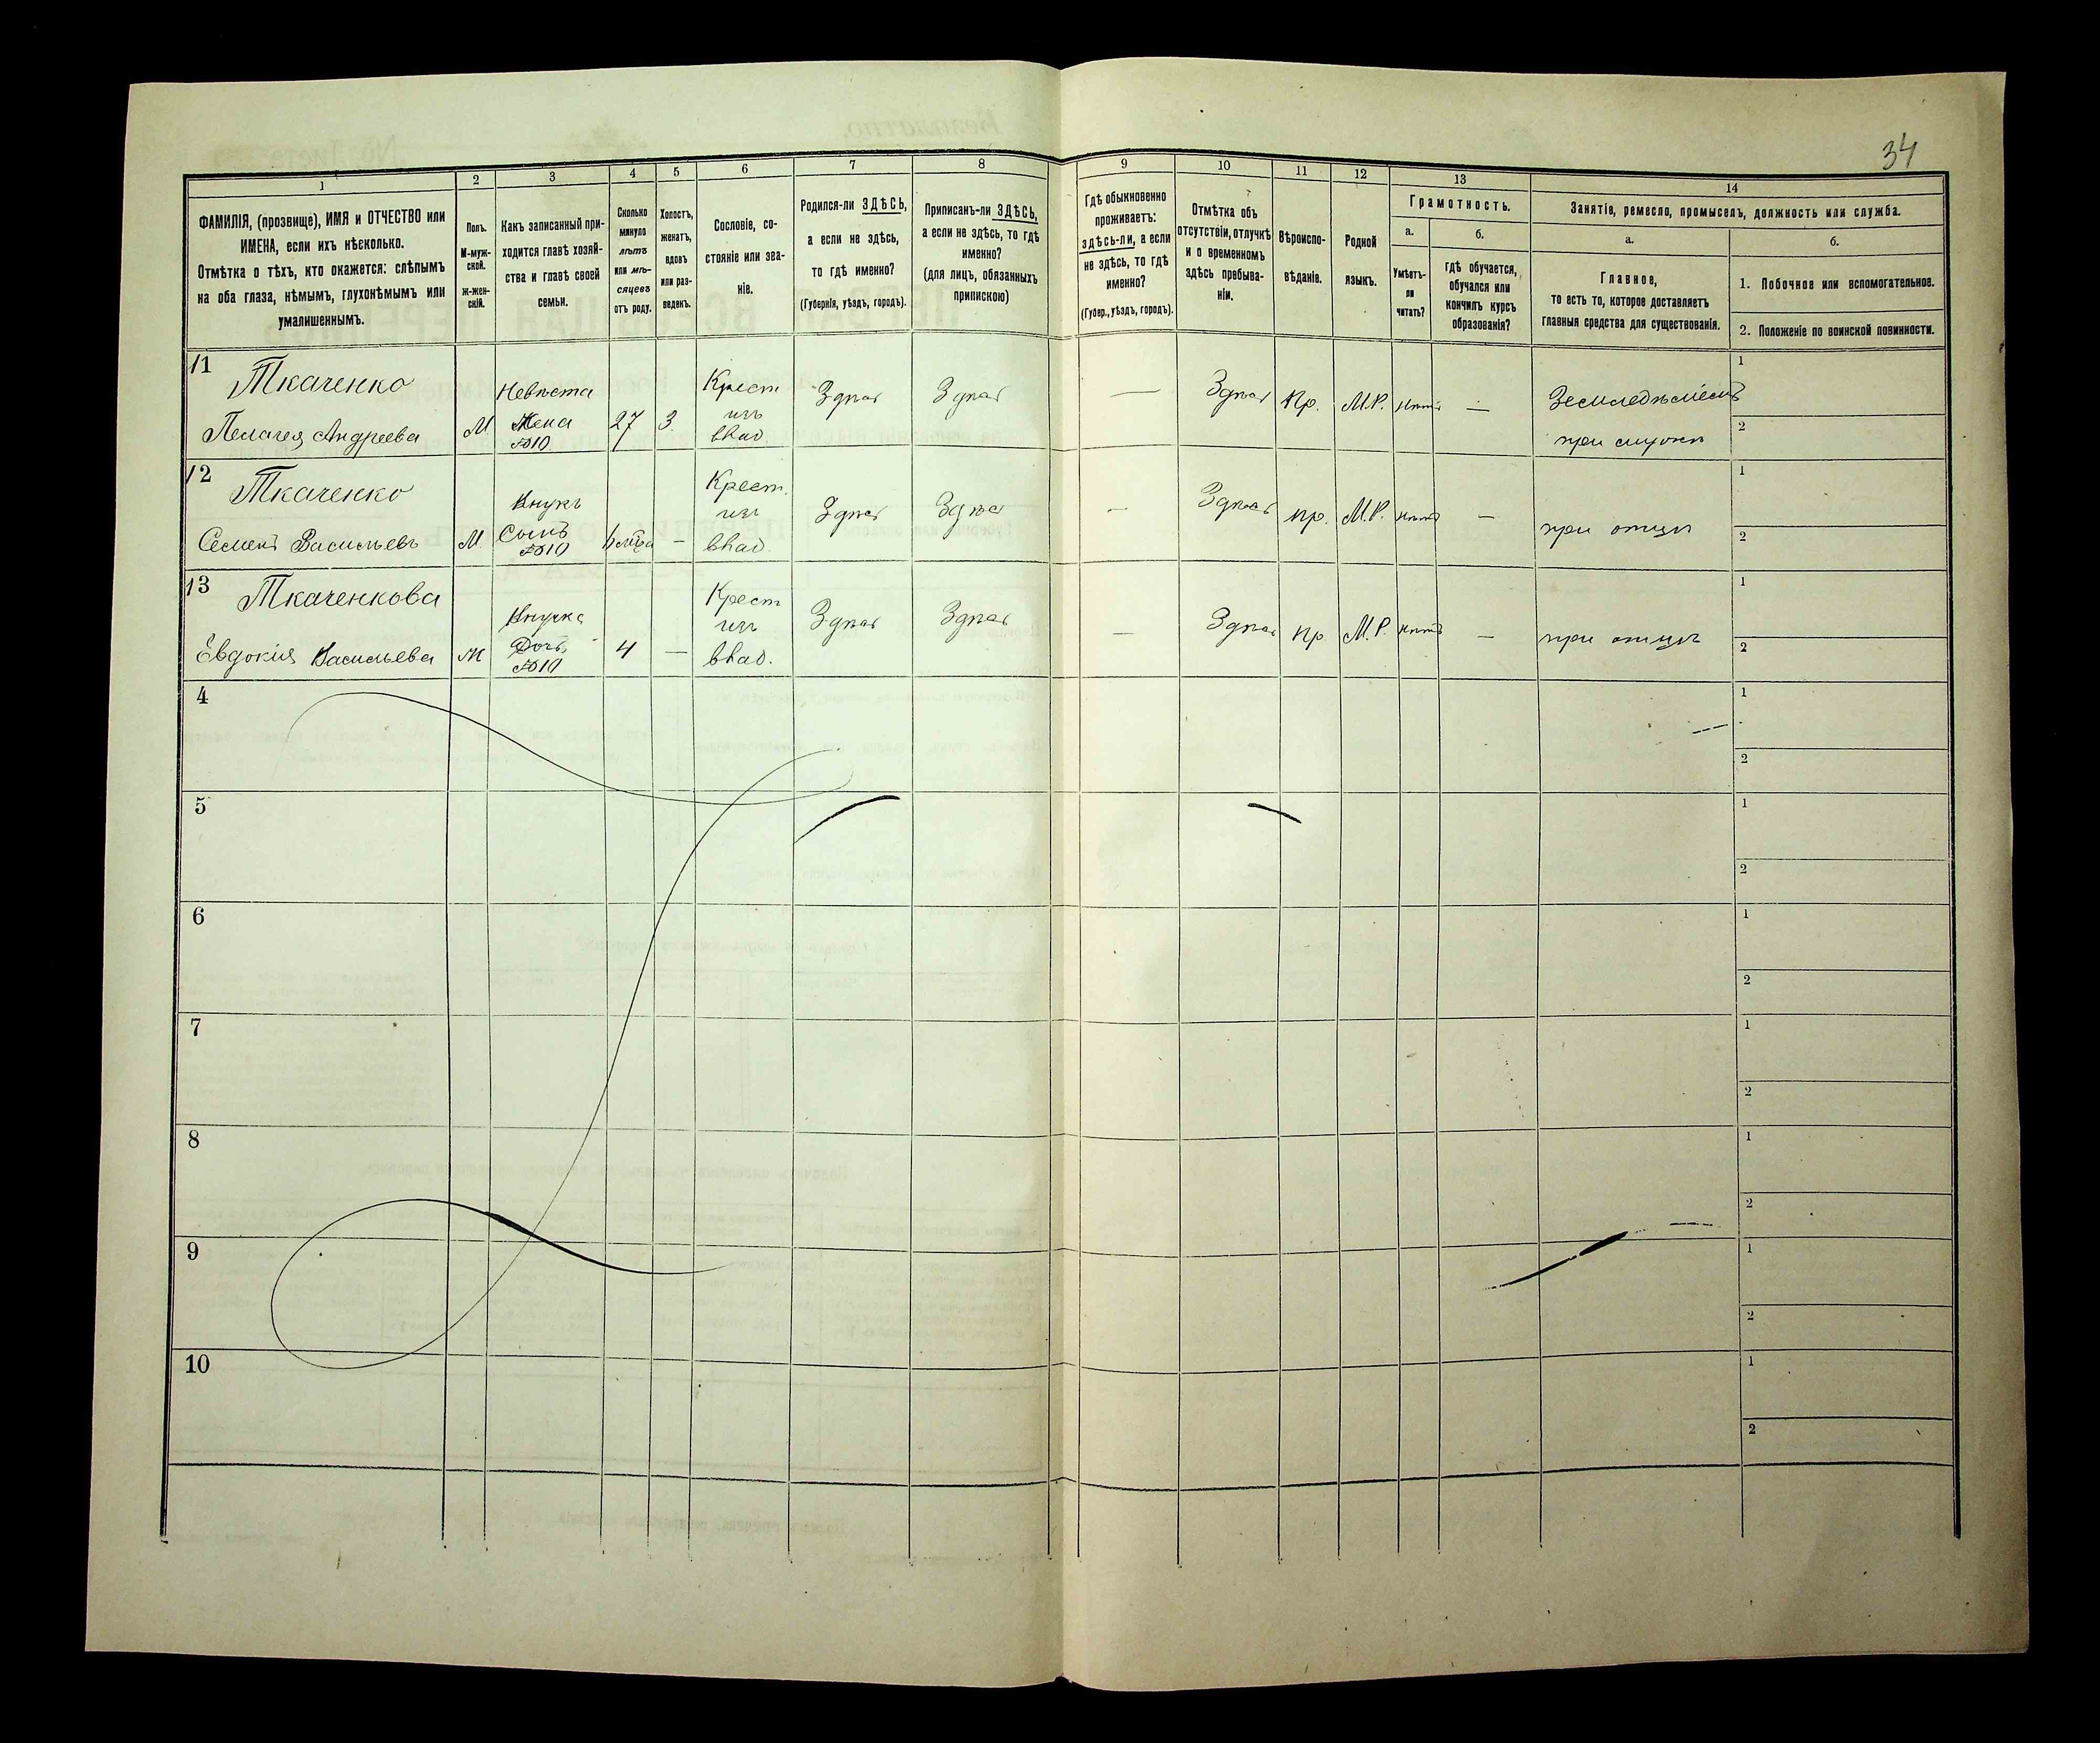 34
1
2
3
4
5
6
7
8
9
10
11
12
13
14
ФАМИЛІЯ, (прозвище), ИМЯ и ОТЧЕСТВО или
ИМЕНА, если ихъ нѣсколько.
Отмѣтка о тѣхъ, кто окажется: слѣпымъ
на оба глаза, нѣмымъ, глухонѣмымъ или
умалишеннымъ.
Полъ.
М-муж-
ской.
ж-жен-
скій.
Какъ записанный при-
ходится главѣ хозяй-
ства и главѣ своей
семьи.
Сколько
минуло
лѣтъ
или мѣ-
сяцевъ
отъ роду.
Холостъ,
женатъ,
вдовъ
или раз-
веденъ.
Сословіе, со-
стояніе или зва-
ніе.
Родился-ли ЗДѢСЬ,
а если не здѣсь,
то гдѣ именно?
(Губернія, уѣздъ, городъ).
Приписанъ-ли ЗДѢСЬ,
а если не здѣсь, то гдѣ
именно?
(для лицъ, обязанныхъ
припискою)
Гдѣ обыкновенно
проживаетъ:
здѣсь-ли, а если
не здѣсь, то гдѣ
именно?
(Губер., уѣздъ, городъ).
Отмѣтка объ
отсутствіи, отлучкѣ
и о временномъ
здѣсь пребыва-
ніи.
Вѣроиспо-
вѣданіе.
Родной
языкъ.
Грамотность.
а.
Умѣетъ-
ли
читать?
б.
гдѣ обучается,
обучался или
кончилъ курсъ
образованія?
Занятіе, ремесло, промыселъ, должность или служба.
а.
Главное,
то есть то, которое доставляетъ
главныя средства для существованія.
б.
1. Побочное или вспомогательное.
2. Положеніе по воинской повинности.
11
Ткаченко
Пелагея Андреева
М
Невѣста
Жена
27
З.
Крест
изъ
влад.
Здѣсь
Здѣсь
—
Здѣсь
Пр.
М.Р.
нѣтъ
—
при мужѣ
1
2
12
Ткаченко
Семенъ Васильевъ
М.
Внукъ
Сынъ
—
Крест.
изъ
влад.
Здѣсь
Здѣсь
—
Здѣсь
пр.
М.Р.
нѣтъ
—
при отцѣ
1
2
13
Ткаченкова
Евдокія Васильева
Ж
Внучка
Дочь
4
—
Крест
изъ
влад.
Здѣсь
Здѣсь
—
Здѣсь
пр.
М.Р.
нѣтъ
—
при отцѣ
1
2
4
1
2
5
1
2
6
1
2
7
1
2
8
1
2
9
1
2
10
1
2